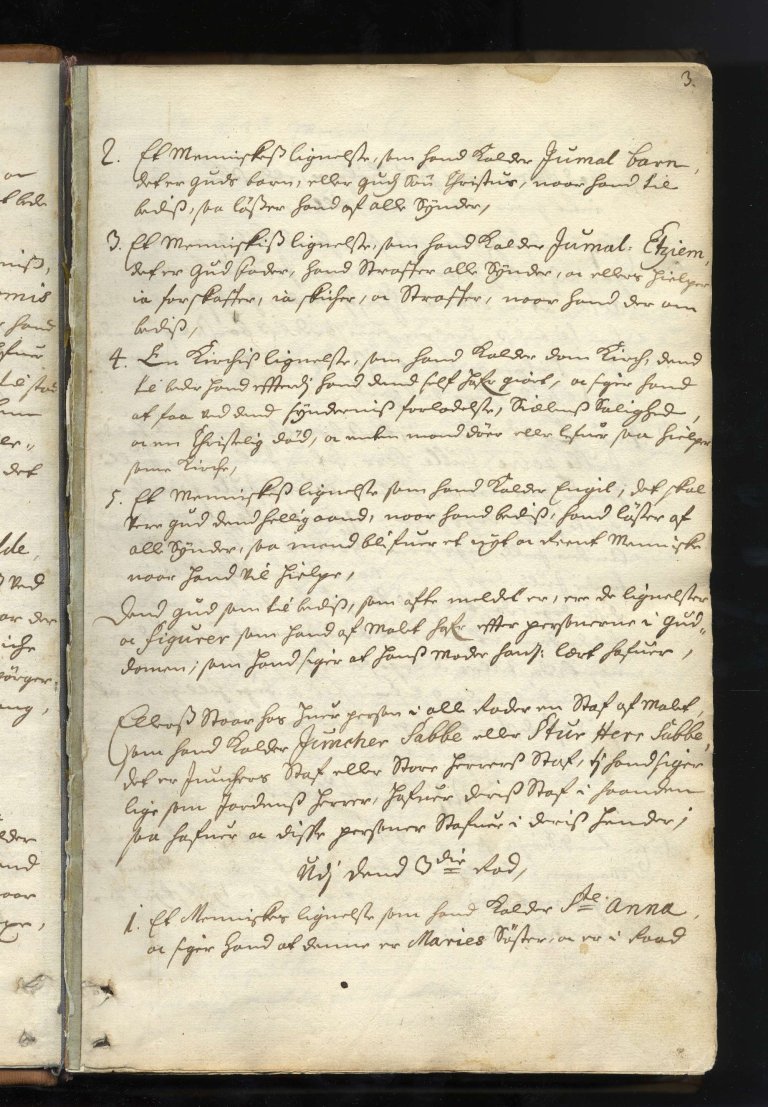 3.
2. Et Menniskes lignelse, som hand Kalder Jumal barn,
det er Guds barn, eller gudz Søn Christus, naar hand til
bediß, saa løßer hand af alle Synder,
3. Et Menniskis lignelse, som hand Kalder Jumal: Etziem,
det er Gud fader, hand Straffer alle Synder, oc ellers hielper
ia forskaffer, ia skicher, oc Straffer, naar hand der om
bediß,
4. En Kirchis lignelse, som hand Kalder dom Kirch, dend
til beder hand effterdj hand dend self hafr giort, oc siger hand
at faa ved dend syndernis forladelse, Siælens Salighed,
oc en Christelig død, oc enten mand døer eller lefuer saa hielper
samme Kirche,
5. Et Menniskes lignelse som hand Kalder Engil, det skal
være gud dend hellig aand, naar hand bediß, hand løser af
alle Synder, saa mand blifuer et nyt oc reent Menniske
naar hand vil hielpe,
Dend gud som til bediß, som offte meldet er, ere de lignelser
oc figurer som hand af Malet hafr effter personerne i Gud=
domen, som hand siger at hans Moder hans: lært hafuer,
Elloß Staar hos huer person i alle Rader en Staf af Malet,
som hand Kalder Juncher Sabbe eller Stur Herr Sabbe,
det er Junchers Staf eller Store Herrers Staf, tj hand siger
lige som Jordens Herrer, hafuer deris Staf i haanden
saa hafuer oc disse personer Stafuer i deris Hender,
Udj dend 3die Rad,
1. Et Menniskes lignelse som hand Kalder Ste. Anna,
oc siger hand at denne er Maries Søster, oc er i Raad